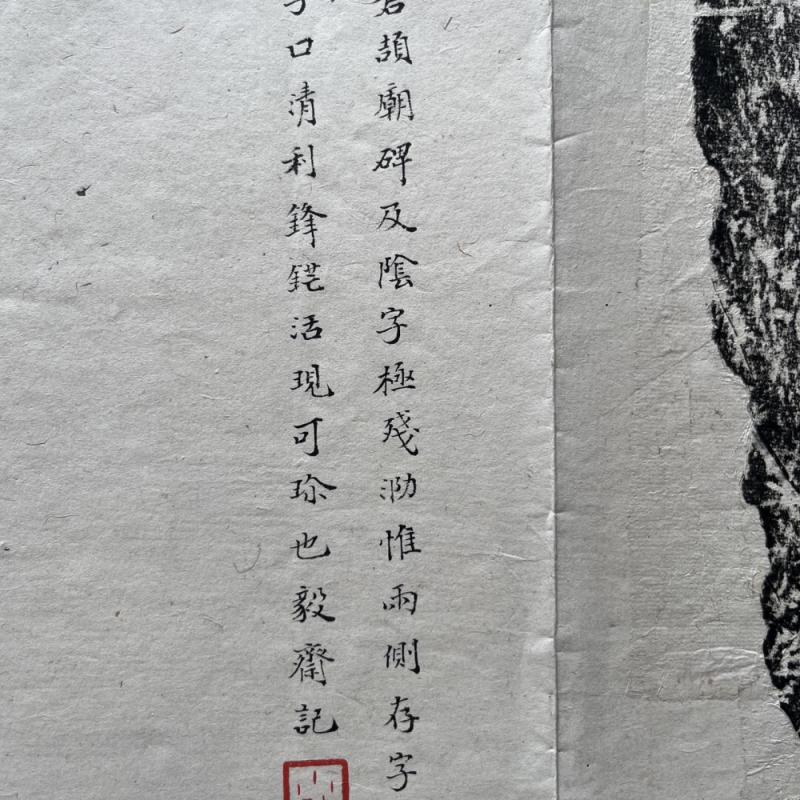 頡廟碑及陰字極殘泐惟兩側存字
口清利鋒鋩活現可珎也毅齋記